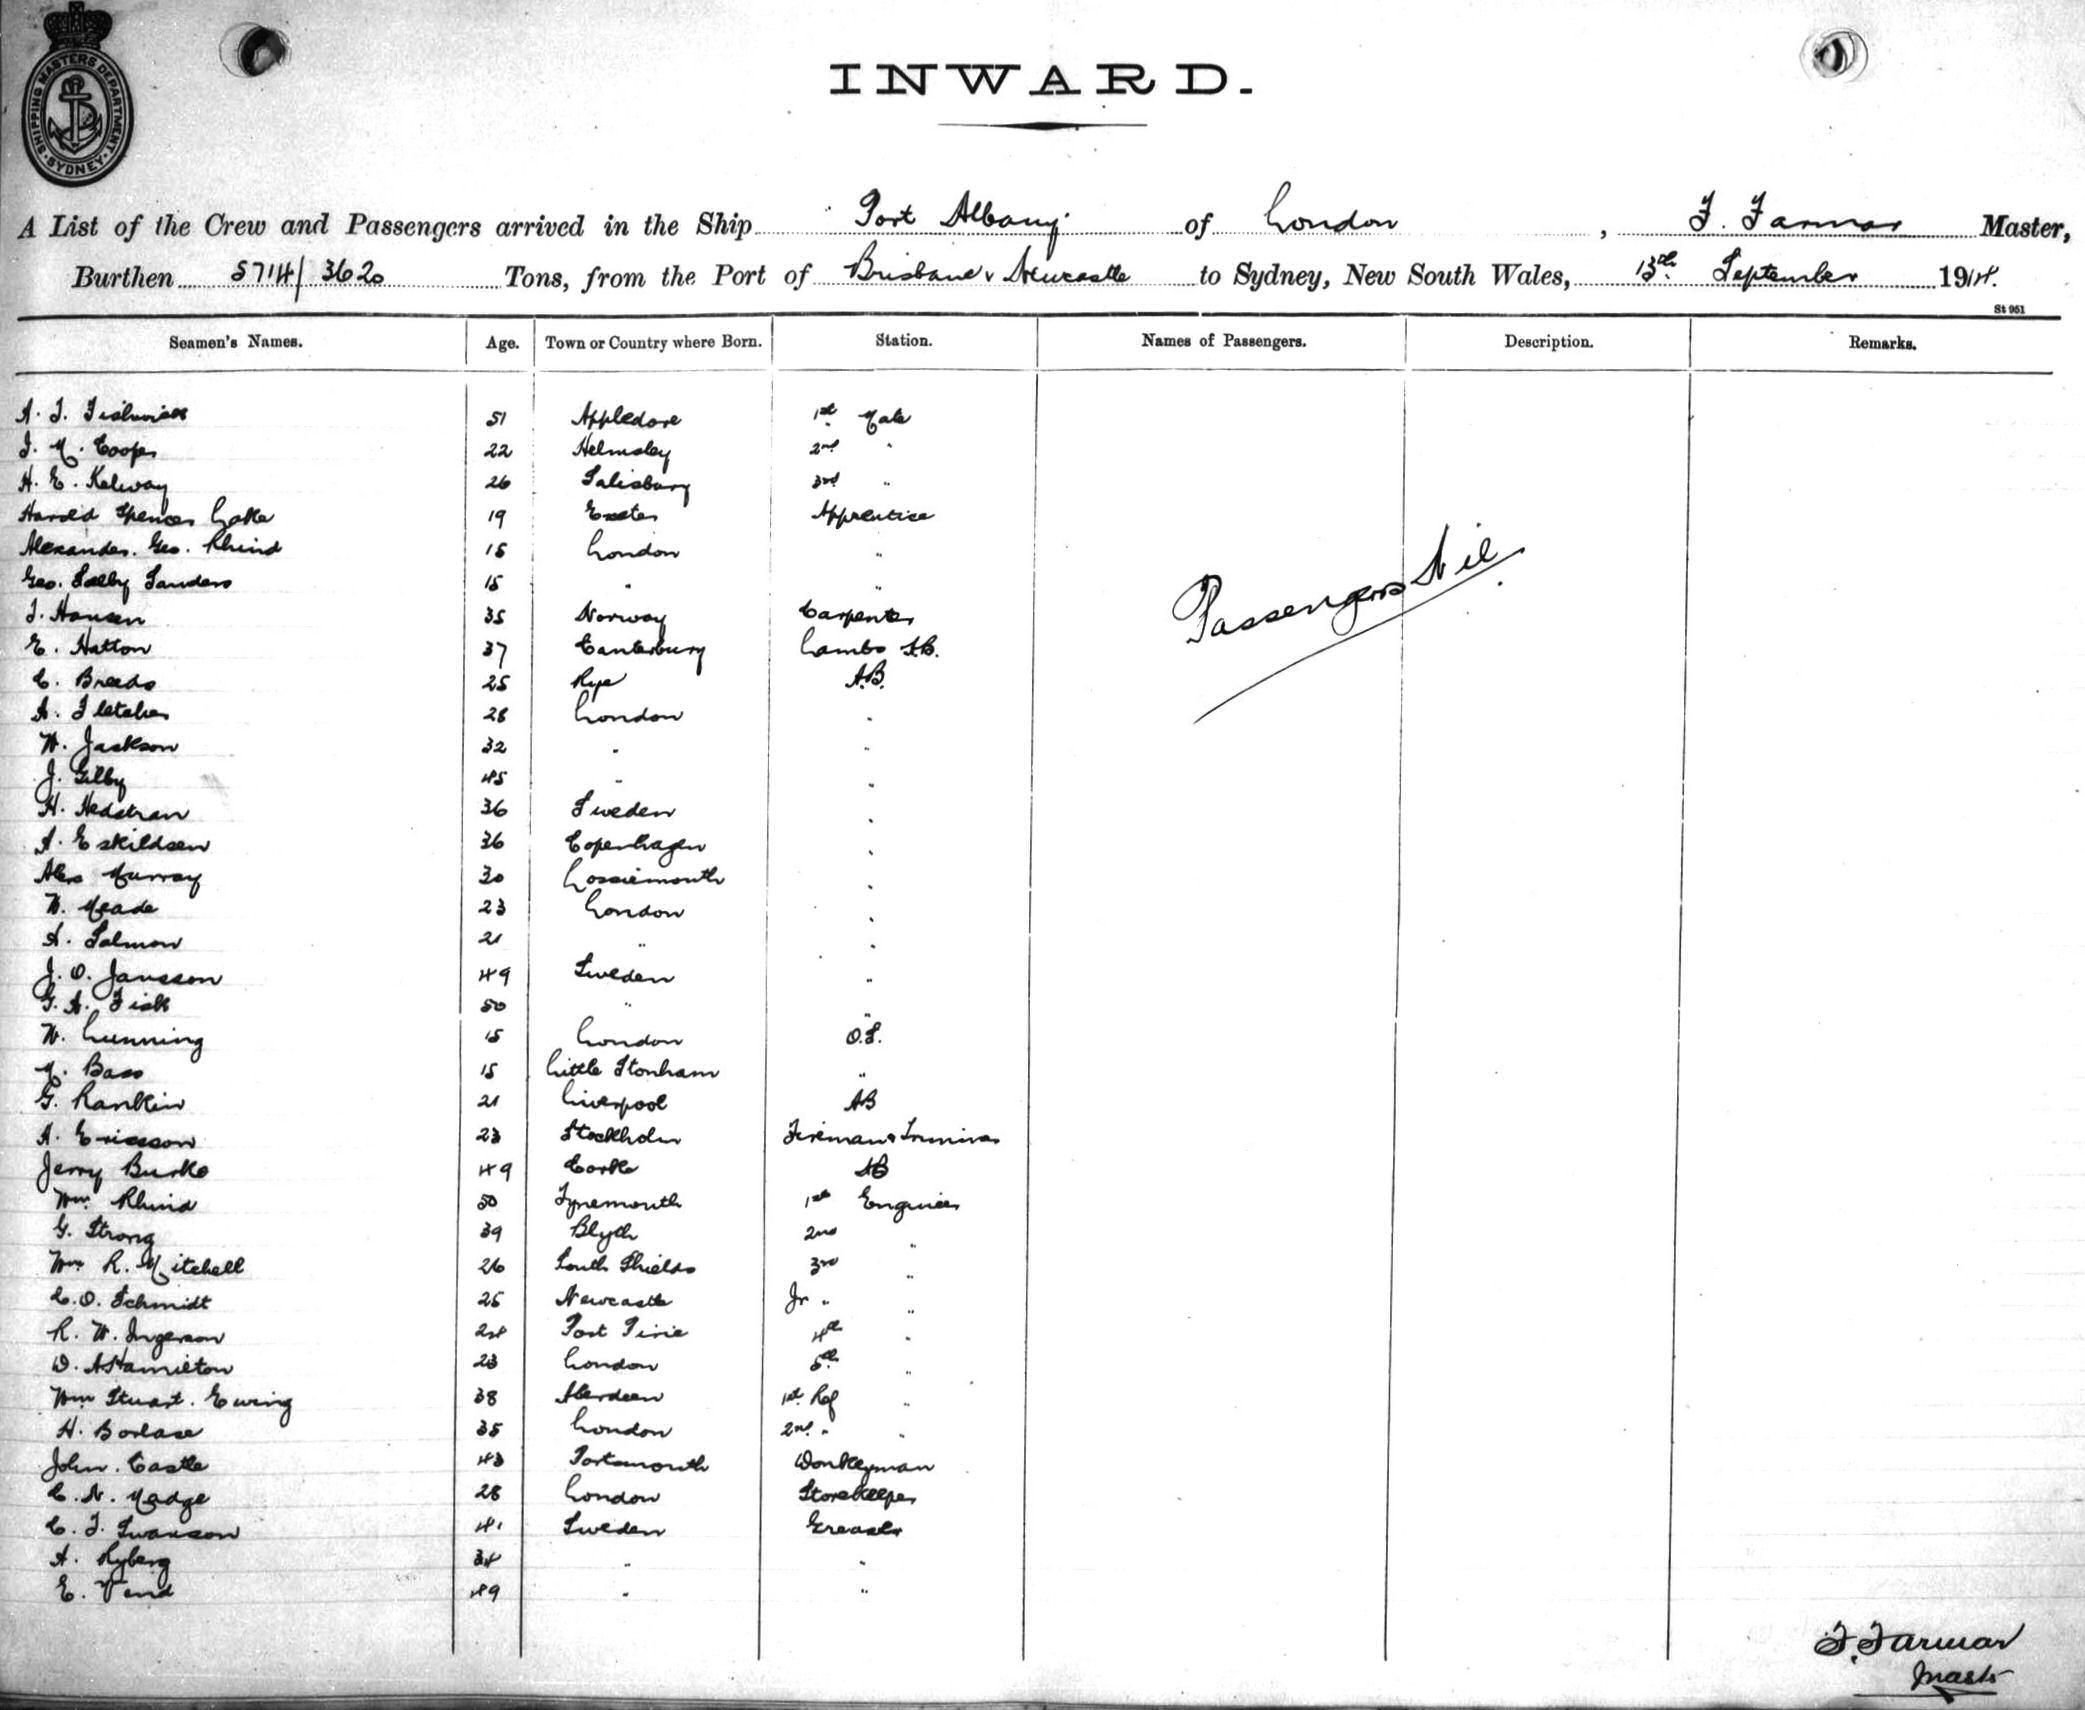 SHIPPING MASTERS DEPARTMENT · SYDNEY ·
INWARD.
A List of the Crew and Passengers arrived in the Ship Port Albany of London , F. Farmar Master,
Burthen 5714/3620 Tons, from the Port of Brisbane & Newcastle to Sydney, New South Wales, 13th September 1914.
St 951
Seamen's Names. Age. Town or Country where Born. Station. Names of Passengers. Description. Remarks.
51 Appledore 1st Mate
22 Helmsley 2nd "
H. E. Kelway 26 Salisbury 3rd "
Harold Spencer Lake 19 Exeter Apprentice
Alexander. Geo. Rhind 15 London "
Geo. Selby Sanders 15 " "
Passengers Nil
J. Hansen 35 Norway Carpenter
E. Hatton 37 Canterbury Lamps A.B.
C. Breeds 25 Rye A.B.
A. Fletcher 28 London "
W. Jackson 32 " "
J. Gilby 45 " "
H. Hedstran 36 Sweden "
A. Eskildsen 36 Copenhagen "
Alex Murray 30 Lossiemouth "
W. Meade 23 London "
A. Salmon 21 " "
J. O. Jansson 49 Sweden "
G. A. Fisk 50 " "
W. Lunning 15 London O.S.
M. Bass 15 Little Stonham "
G. Rankin 21 Liverpool AB
A. Ericsson 23 Stockholm Fireman & Trimmer
Jerry Burke 49 Cork AB
Wm. Rhind 50 Tynemouth 1st Engineer
G. Strong 39 Blyth 2nd "
Wm R. Mitchell 26 South Shields 3rd "
C. O. Schmidt 25 Newcastle Jr " "
R. W. Ingerson 24 Port Pirie 4th "
D. A Hamilton 23 London 5th "
Wm Stuart. Ewing 38 Aberdeen 1st Ref "
H. Borlase 35 London 2nd " "
John. Castle 43 Portsmouth Donkeyman
C. N. Madge 28 London Storekeeper
C. J. Swanson 41 Sweden Greaser
A. Ryberg 34 " "
E. 49 " "
F. Farmar
Master